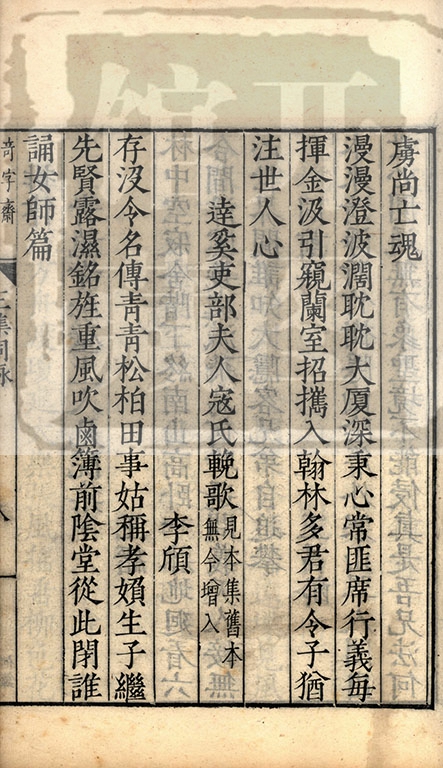 虜尚亡魂
漫漫澄波濶耽耽大厦深秉心常匪席行義每
揮金汲引窺蘭室招攜入翰林多君有令子猶
注世人心
達奚吏部夫人寇氏輓歌見本集舊本無今增入
李頎
存没令名傳青青松柏田事姑稱孝婦生子繼
先賢露濕銘旌重風吹鹵簿前陰堂從此閉誰
誦女師篇
奇字齋